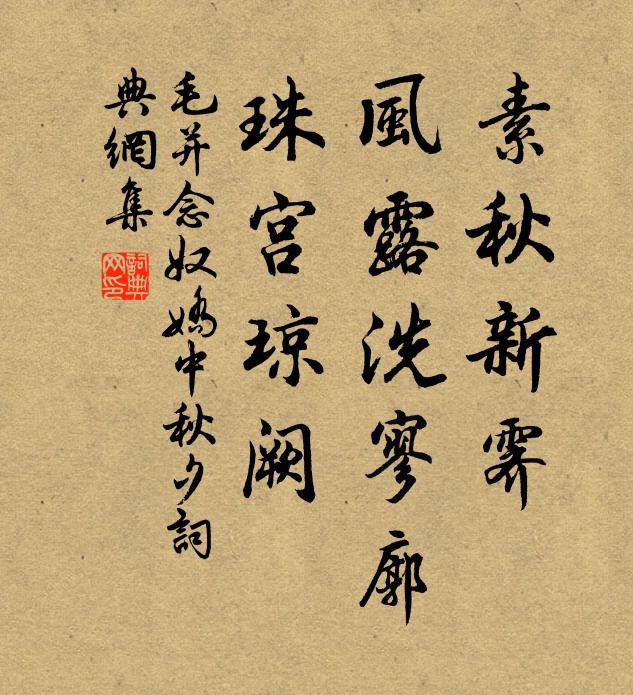 素秋新霽
風露洗寥廓
珠宮琼阙
毛并念奴嬌中秋夕詞
典網集
詞典
网印